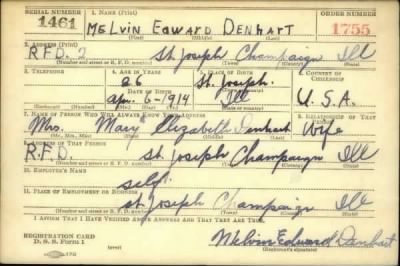 SERIAL NUMBER 1. NAME (Print) ORDER NUMBER
1461 MELVIN EDWARD DENHART 1755
(First) (Middle) (Last)
2. ADDRESS (Print)
R.F.D. 2 St. Joseph Champaign Ill
(Number and street or R. F. D. number) (Town) (County) (State)
3. TELEPHONE 4. AGE IN YEARS 5. PLACE OF BIRTH 6. COUNTRY OF CITIZENSHIP
26 St. Joseph.
DATE OF BIRTH
Apr. 6-1914 Ill U.S.A.
(Exchange) (Number) (Mo.) (Day) (Yr.) (State or country)
7. NAME OF PERSON WHO WILL ALWAYS KNOW YOUR ADDRESS 8. RELATIONSHIP OF THAT PERSON
Mrs. Mary Elizabeth Denhart Wife
(Mr., Mrs., Miss) (First) (Middle) (Last)
9. ADDRESS OF THAT PERSON
R.F.D. St. Joseph Champaign Ill
(Number and street or R. F. D. number) (Town) (County) (State)
10. EMPLOYER'S NAME
self.
11. PLACE OF EMPLOYMENT OR BUSINESS
St. Joseph Champaign Ill
(Number and street or R. F. D. number) (Town) (County) (State)
I AFFIRM THAT I HAVE VERIFIED ABOVE ANSWERS AND THAT THEY ARE TRUE.
REGISTRATION CARD
D. S. S. Form 1 (over) Melvin Edward Denhart
(Registrant's signature)